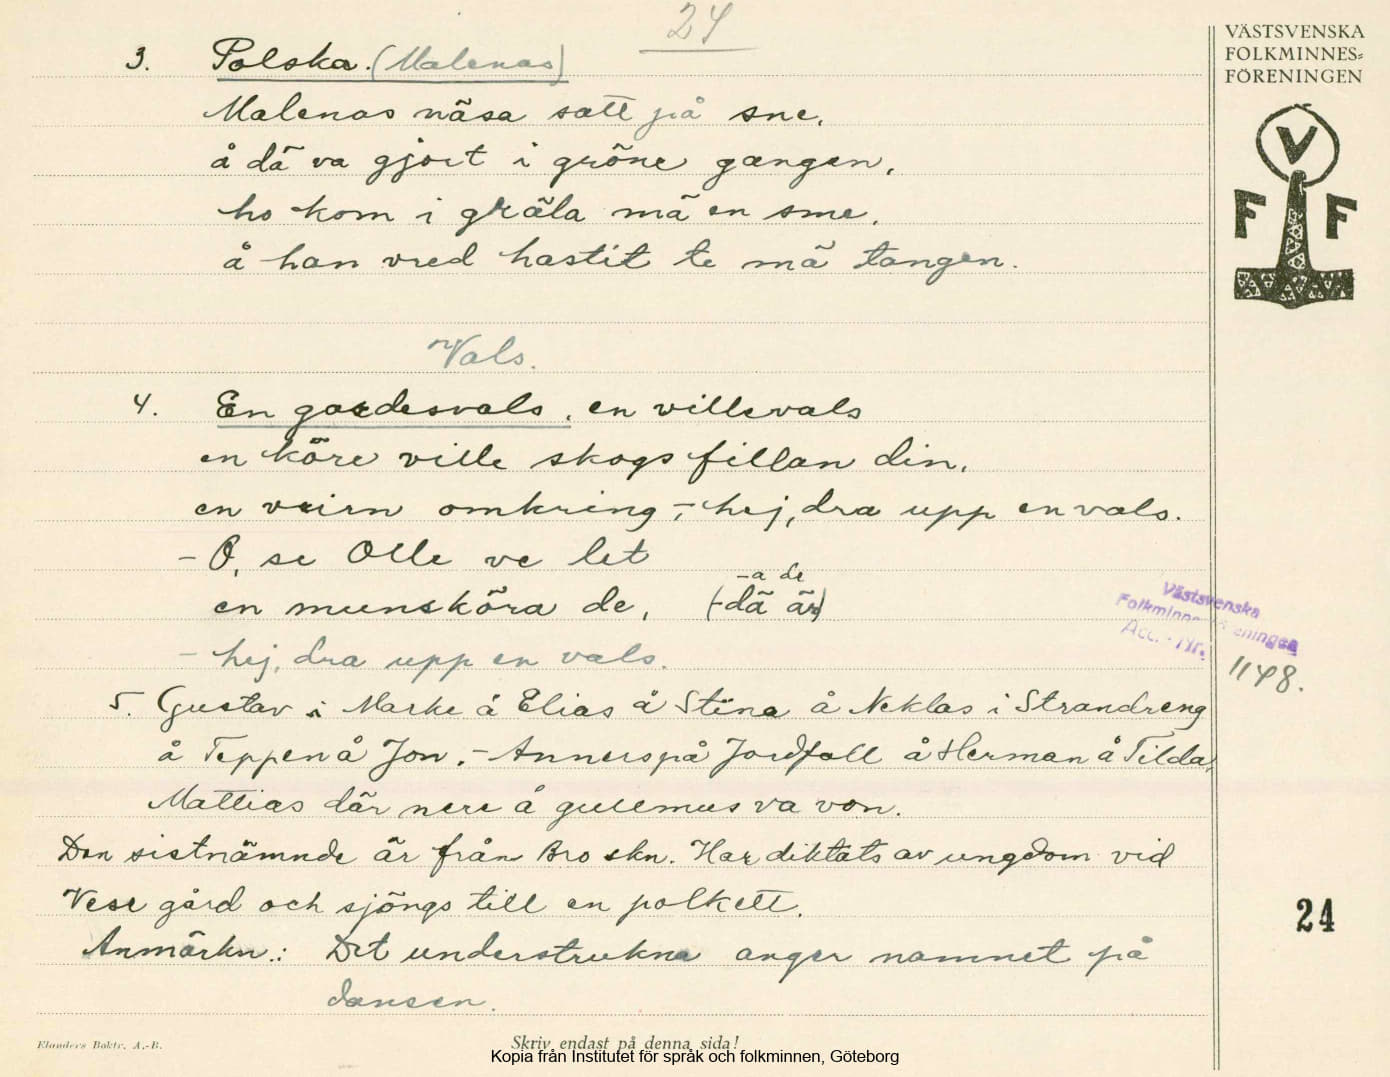 24
VÄSTSVENSKA
FOLKMINNES=
FÖRENINGEN
V
F F
3. Polska. (Malenas)
Malenas näsa satt på sne,
å dä va gjort i gröne gangen,
ho kom i gräla mä en sme,
å han vred hastit te mä tangen.
Vals.
4. En gardesvals, en villevals
en köre ville skogs fillan din,
en veirn omkring, – hej, dra upp en vals.
– O, se Olle ve let
–a de
en munsköra de, (–dä är)
– hej, dra upp en vals.
5. Gustav i Marke å Elias å Stina å Neklas i Strandreng
å Teppen å Jon, – Anners på Jordfall å Herman å Tilda,
Mattias där nere å gullmus va von.
Den sistnämnde är från Bro skn. Har diktats av ungdom vid
Vese gård och sjöngs till en polkett.
Anmärkn.: Det understrukna anger namnet på
dansen.
Västsvenska
Folkminnesföreningen
Acc.-Nr. 1148.
24
Elanders Boktr. A.-B.
Skriv endast på denna sida!
Kopia från Institutet för språk och folkminnen, Göteborg